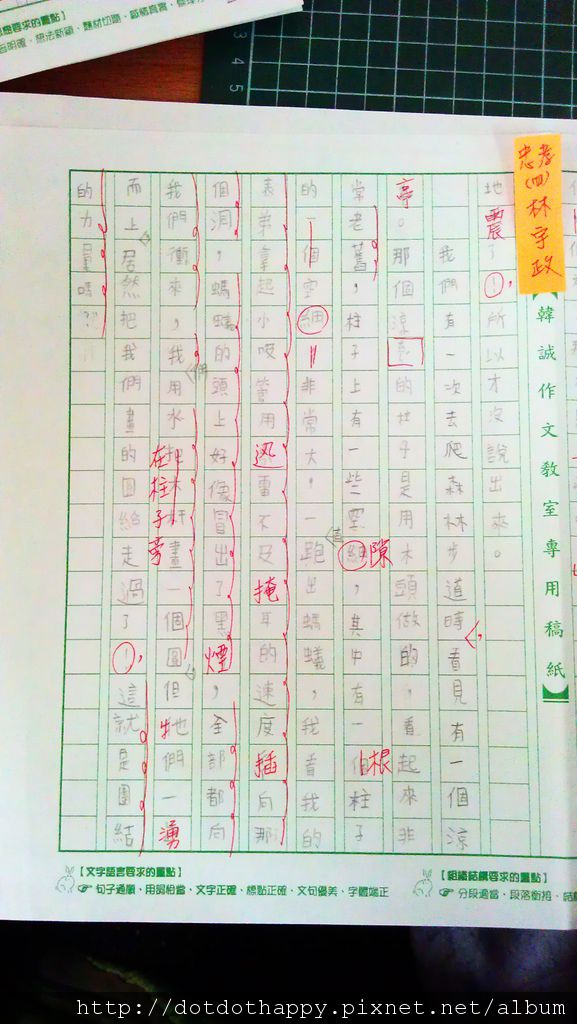 忠孝
(四)
林宇政
韓誠作文教室專用稿紙
地震了！，所以才沒說出來。
我們有一次去爬森林步道時，看見有一個涼
亭。那個涼的柱子是用木頭做的，看起來非
常老舊，柱子上有一些空隙，其中有一根柱子
的一個空細非常大，一直跑出螞蟻，我看我的
表弟拿起小吸管用迅雷不及掩耳的速度插向那
個洞，螞蟻的頭上好像冒出了黑煙，全部都向
我們衝來，我們用水在柱子旁畫一個圓，但牠們一湧
而上居然把我們畫的圓給走過了！，這就是團結
的力量嗎？
【文字語言要求的重點】
句子通順、用詞恰當、文字正確、標點正確、文句優美、字體端正
【組織結構要求的重點】
分段適當、段落銜接、結
http://dotdothappy.pixnet.net/album